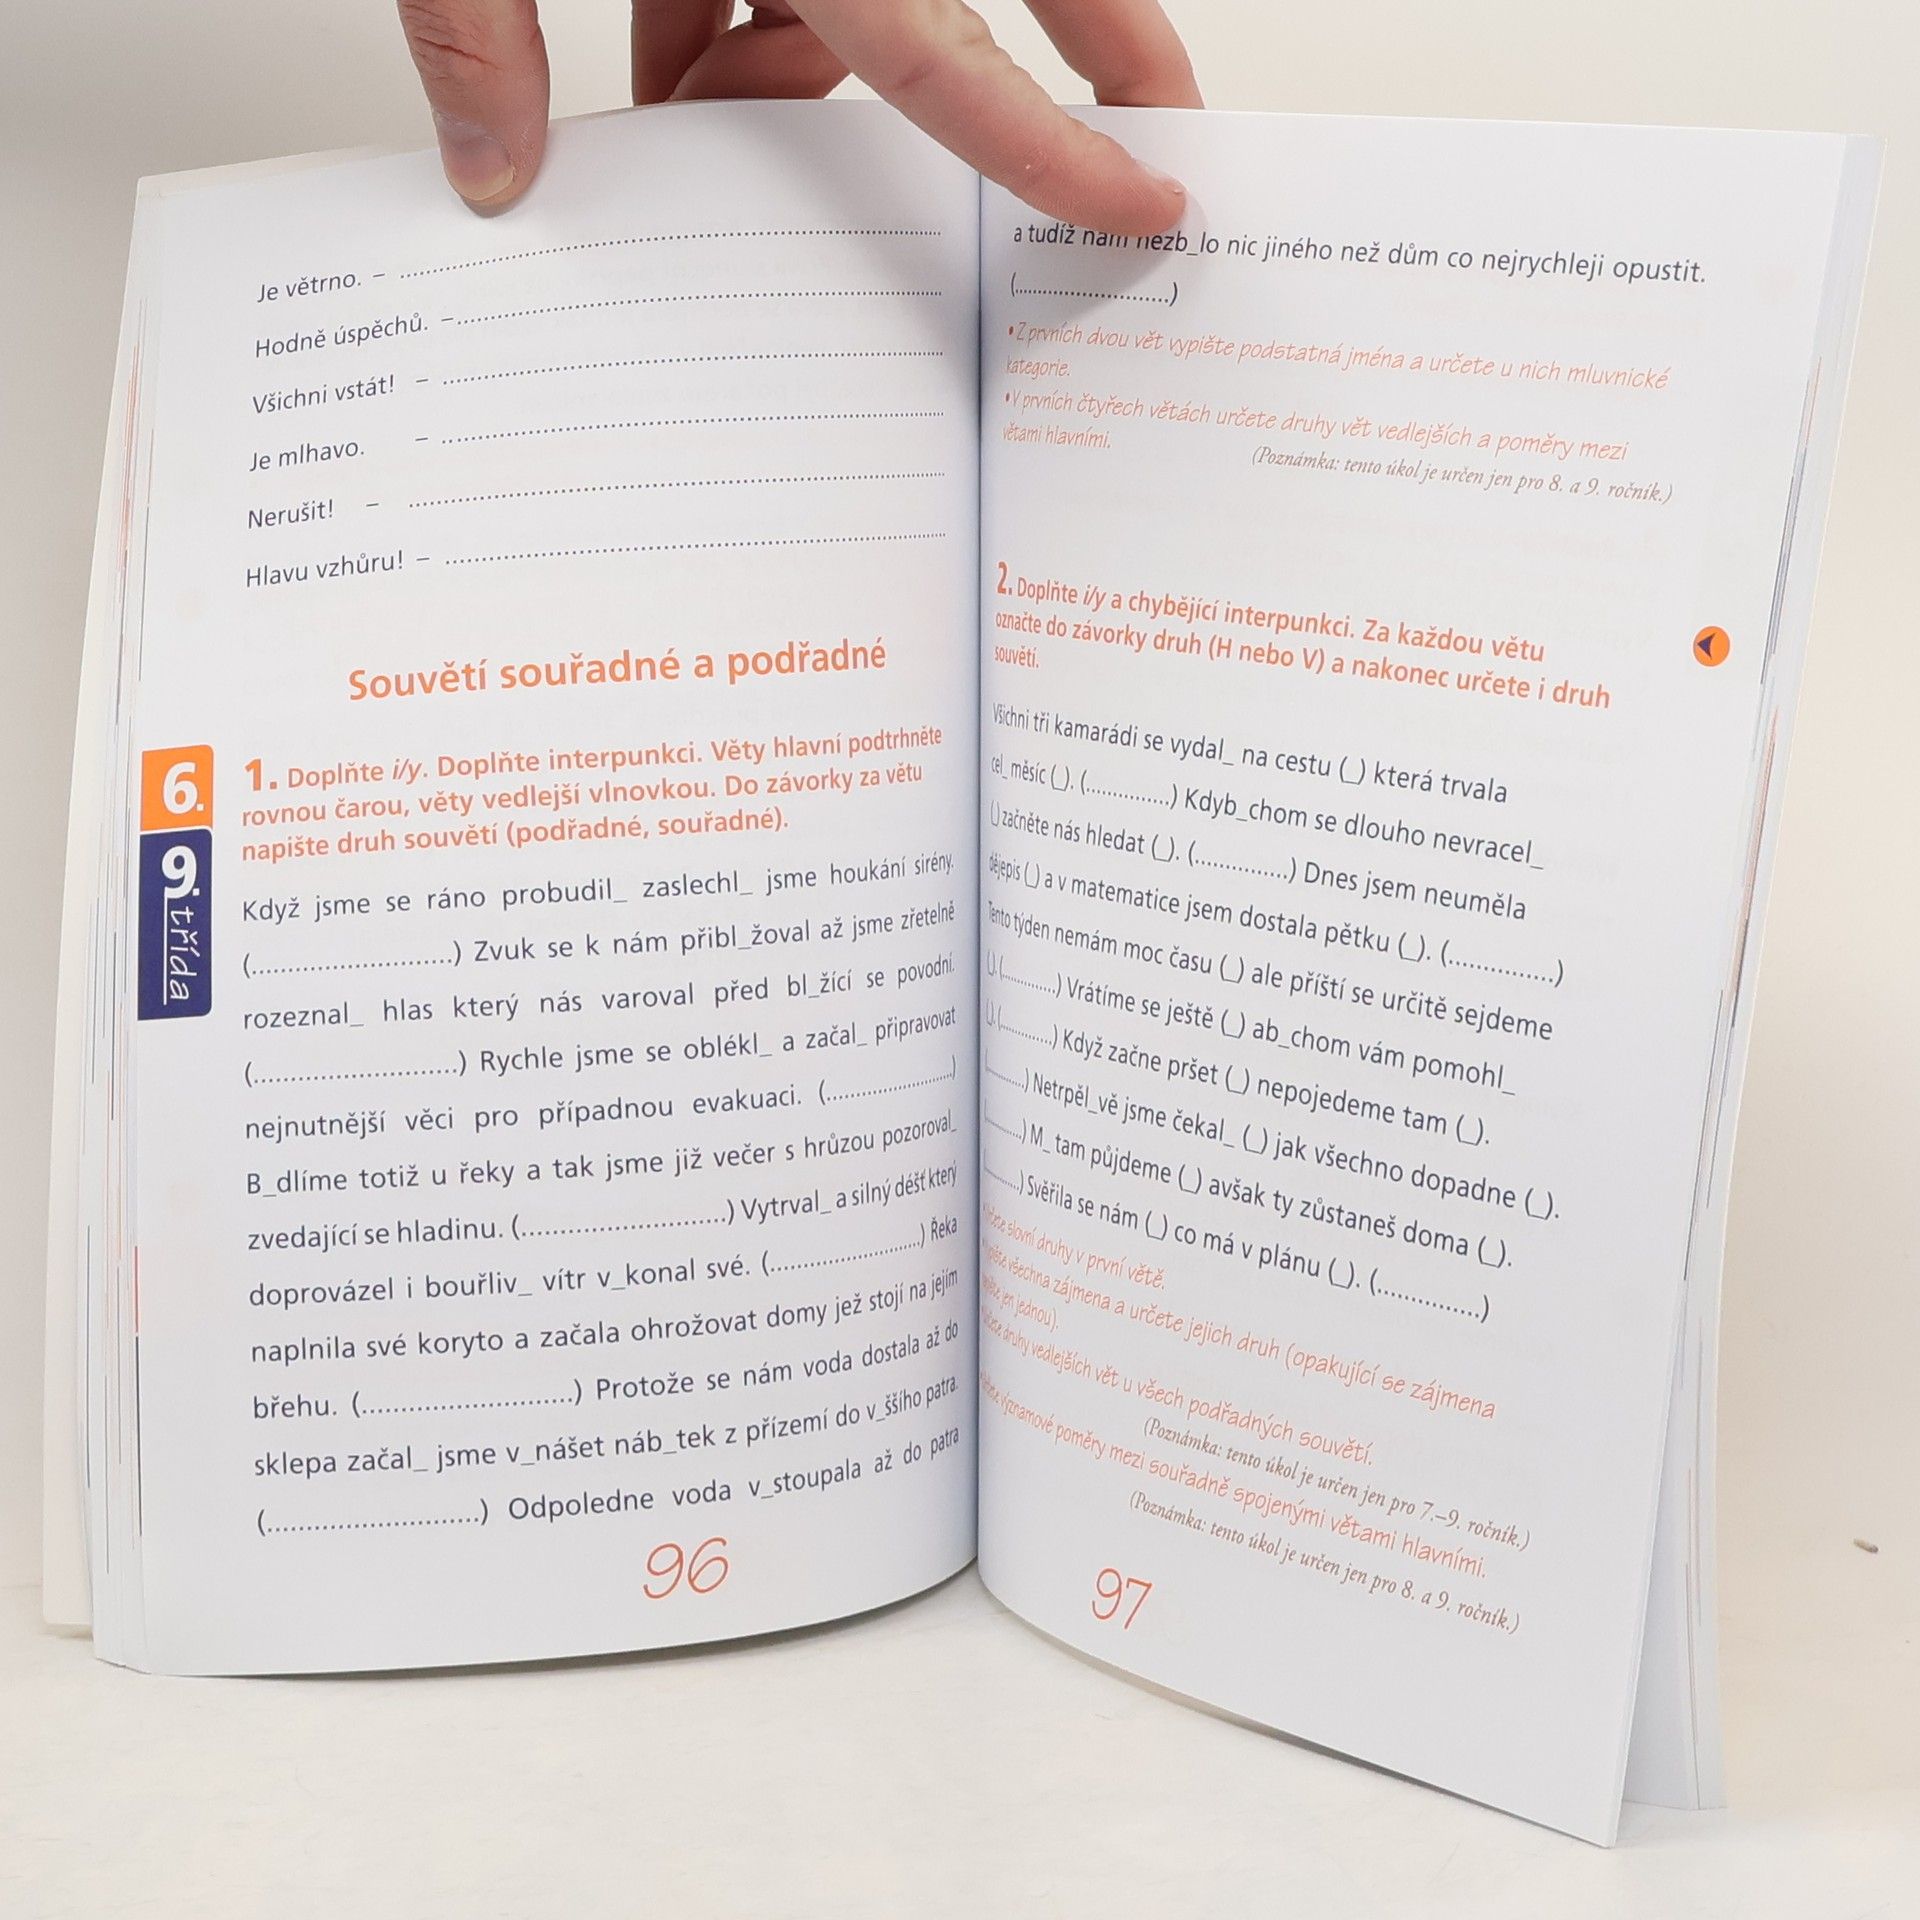 Je větrno. – ..........
Hodně úspěchů. –..........
Všichni vstát! – ..........
Je mlhavo. – ..........
Nerušit! – ..........
Hlavu vzhůru! – ..........
Souvětí souřadné a podřadné
6.
9. třída
1. Doplňte i/y. Doplňte interpunkci. Věty hlavní podtrhněte
rovnou čarou, věty vedlejší vlnovkou. Do závorky za větu
napište druh souvětí (podřadné, souřadné).
Když jsme se ráno probudil_ zaslechl_ jsme houkání sirény.
(..........) Zvuk se k nám přibl_žoval až jsme zřetelně
rozeznal_ hlas který nás varoval před bl_žící se povodní.
(..........) Rychle jsme se oblékl_ a začal_ připravovat
nejnutnější věci pro případnou evakuaci. (..........)
B_dlíme totiž u řeky a tak jsme již večer s hrůzou pozoroval_
zvedající se hladinu. (..........) Vytrval_ a silný déšť který
doprovázel i bouřliv_ vítr v_konal své. (..........) Řeka
naplnila své koryto a začala ohrožovat domy jež stojí na jejím
břehu. (..........) Protože se nám voda dostala až do
sklepa začal_ jsme v_nášet náb_tek z přízemí do v_ššího patra.
(..........) Odpoledne voda v_stoupala až do patra
96
a tudíž nám nezb_lo nic jiného než dům co nejrychleji opustit.
(..........)
•Z prvních dvou vět vypište podstatná jména a určete u nich mluvnické
kategorie.
•V prvních čtyřech větách určete druhy vět vedlejších a poměry mezi
větami hlavními.
(Poznámka: tento úkol je určen jen pro 8. a 9. ročník.)
2. Doplňte i/y a chybějící interpunkci. Za každou větu
označte do závorky druh (H nebo V) a nakonec určete i druh
souvětí.
Všichni tři kamarádi se vydal_ na cestu (_) která trvala
cel_ měsíc (_). (..........) Kdyb_chom se dlouho nevracel_
(_) začněte nás hledat (_). (..........) Dnes jsem neuměla
dějepis (_) a v matematice jsem dostala pětku (_). (..........)
Tento týden nemám moc času (_) ale příští se určitě sejdeme
(_). (..........) Vrátíme se ještě (_) ab_chom vám pomohl_
(_). (..........) Když začne pršet (_) nepojedeme tam (_).
(..........) Netrpěl_vě jsme čekal_ (_) jak všechno dopadne (_).
(..........) M_ tam půjdeme (_) avšak ty zůstaneš doma (_).
(..........) Svěřila se nám (_) co má v plánu (_). (..........)
slovní druhy v první větě.
všechna zájmena a určete jejich druh (opakující se zájmena
jen jednou).
druhy vedlejších vět u všech podřadných souvětí.
(Poznámka: tento úkol je určen jen pro 7.–9. ročník.)
významové poměry mezi souřadně spojenými větami hlavními.
(Poznámka: tento úkol je určen jen pro 8. a 9. ročník.)
97